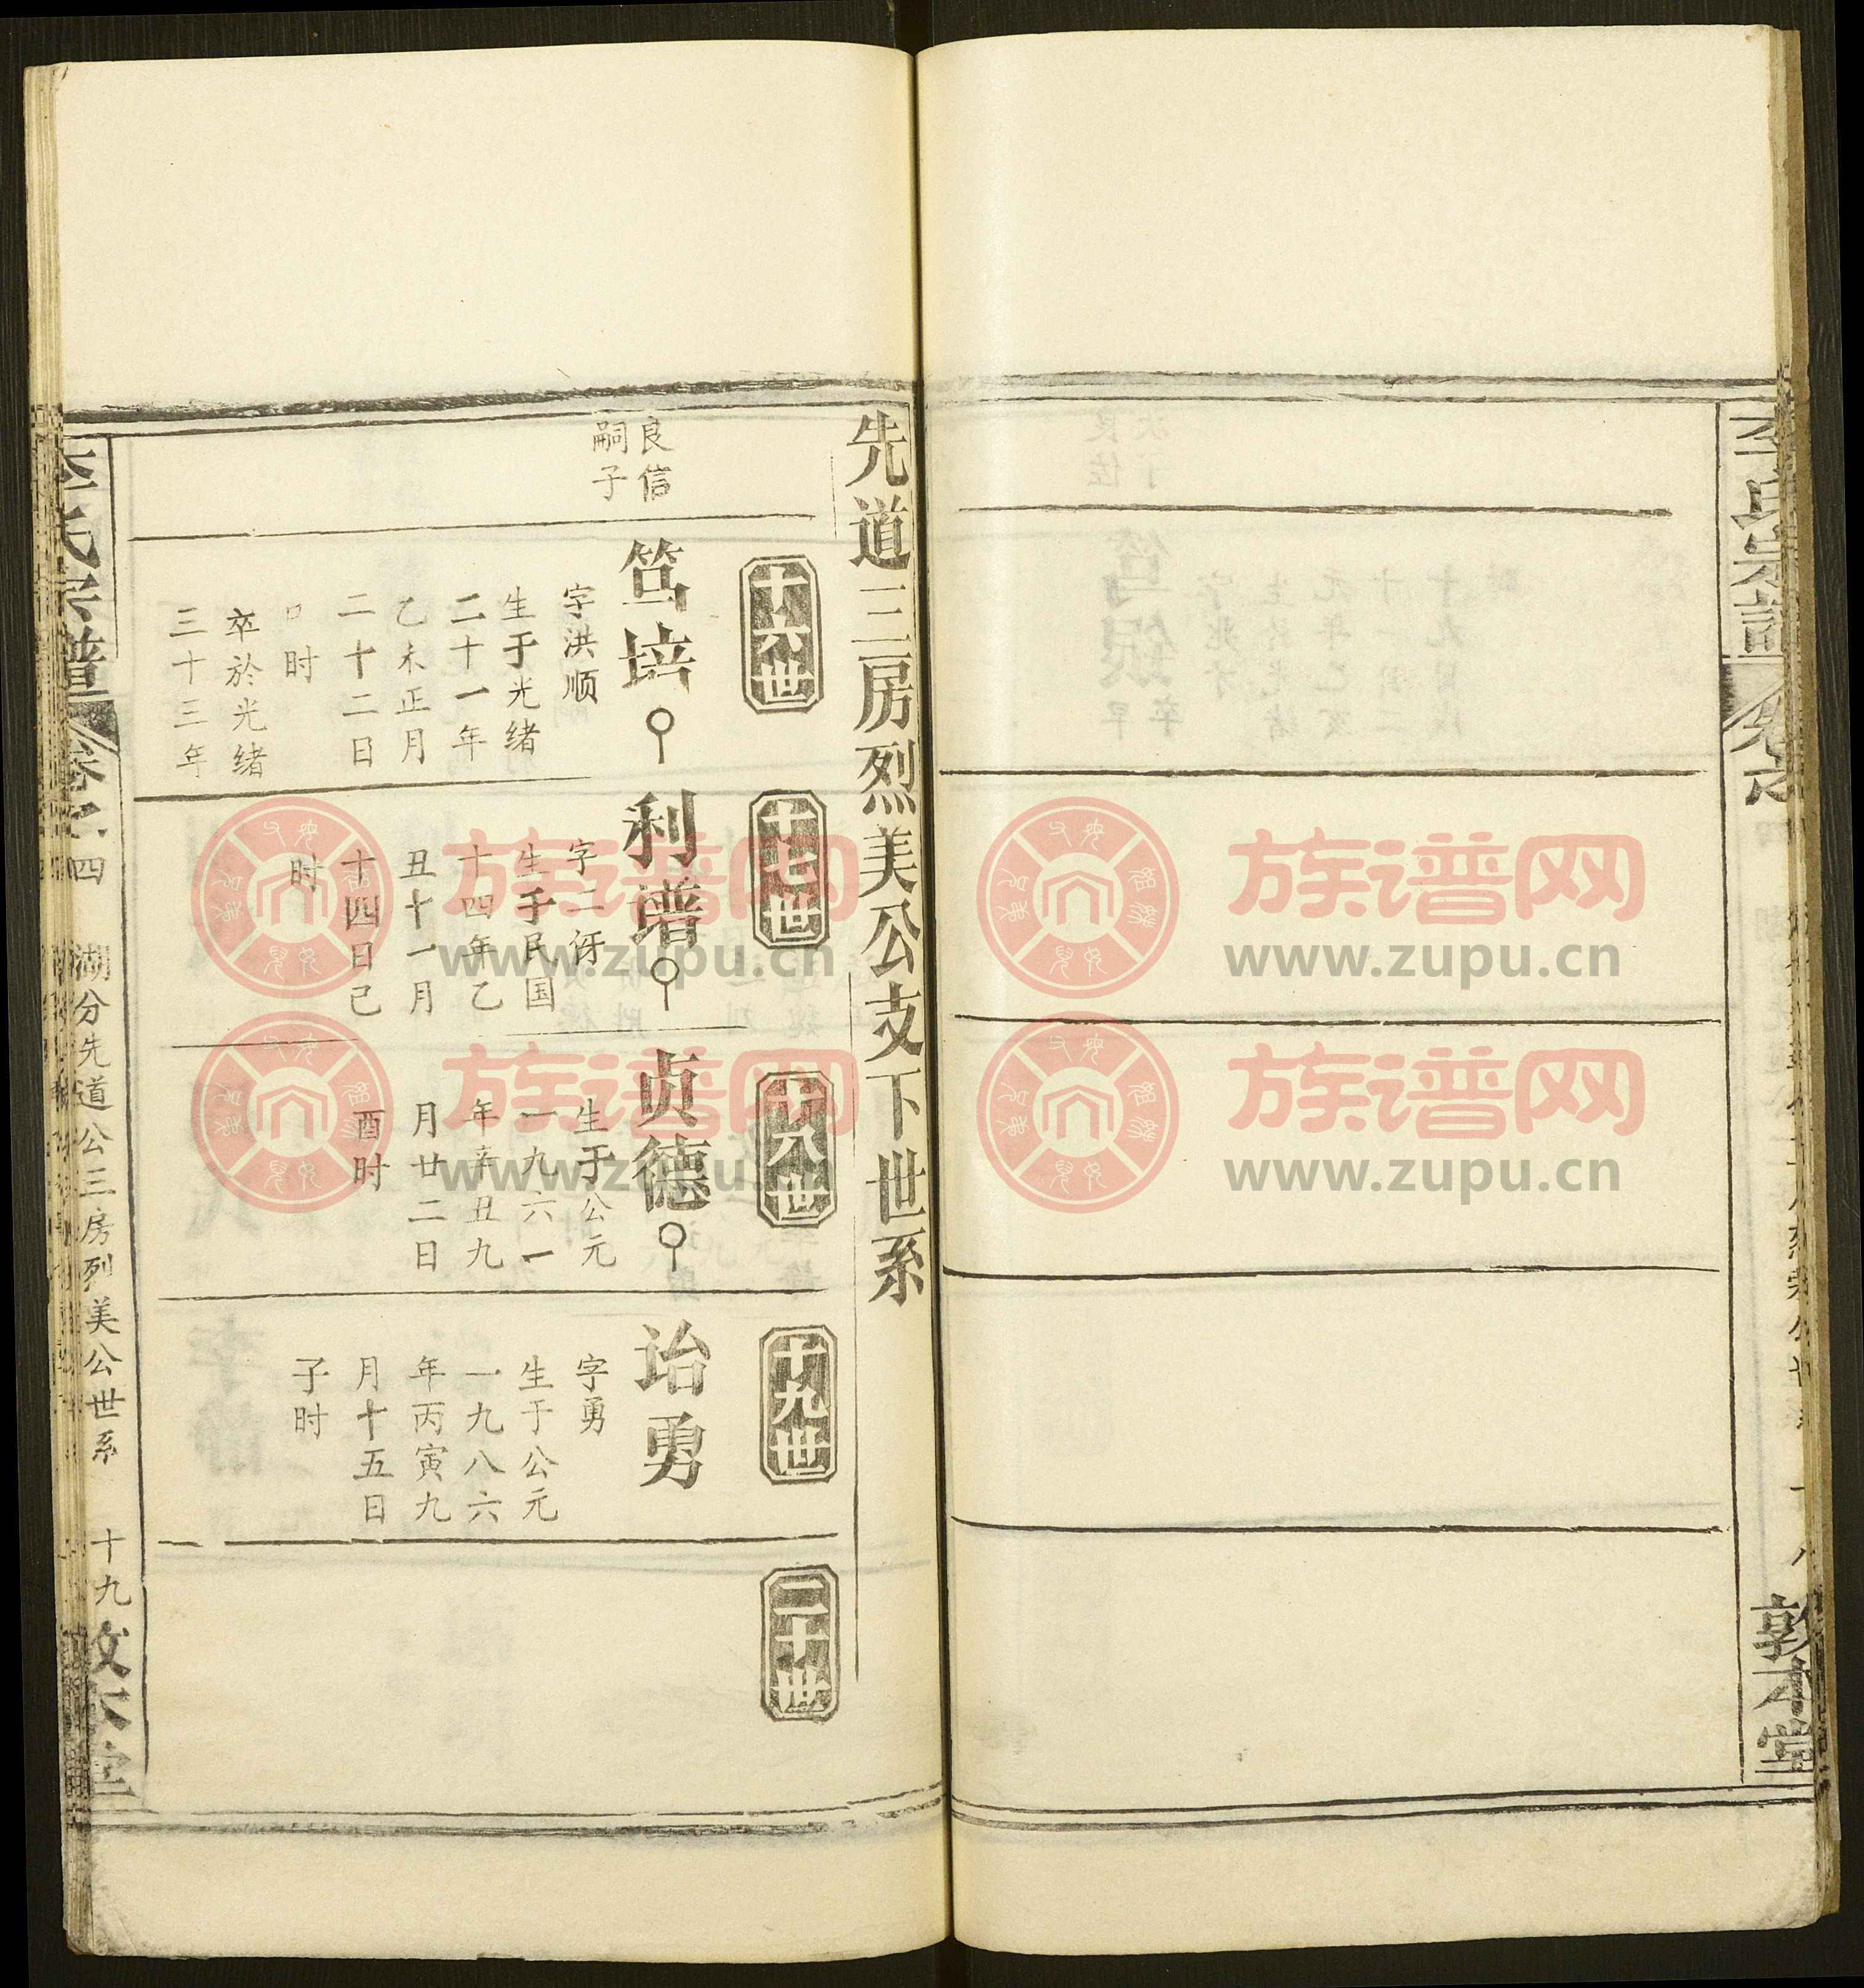 李氏宗谱
卷之
敦本堂
先道三房烈美公支下世系
十六世
十七世
十八世
十九世
二十世
良信
嗣子
笃培
字洪顺
生于光绪
二十一年
乙未正月
二十二日
口时
卒於光绪
三十三年
利谱
字二伢
生于民国
十四年乙
丑十一月
十四日己
时
贞德
生于公元
一九六一
年辛丑九
月廿二日
酉时
诒勇
字勇
生于公元
一九八六
年丙寅九
月十五日
子时
李氏宗谱
卷之四
湖分先道公三房列美公世系
十九
敦本堂
族谱网
www.zupu.cn
族谱网
www.zupu.cn
族谱网
www.zupu.cn
族谱网
www.zupu.cn